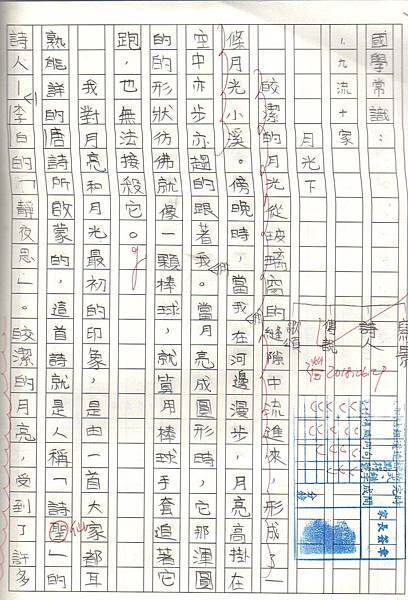 國學常識：
1.九流十家
月光下
皎潔的月光從玻璃窗的縫隙中流進來，形成了一
條月光小溪。傍晚時，當我在河邊漫步，月亮高掛在
空中亦步亦趨的跟著我。當月亮成圓形時，它那渾圓
的的形狀彷彿就像一顆棒球，就算用棒球手套追著它
跑，也無法接殺它。
我對月亮和月光最初的印象，是由一首大家都耳
熟能詳的唐詩所啟蒙的，這首詩就是人稱「詩聖」的
仙
詩人—李白的「靜夜思」。皎潔的月亮，受到了許多
們
們
詩人
傳說
歌頌
2018.06.27
家長簽章